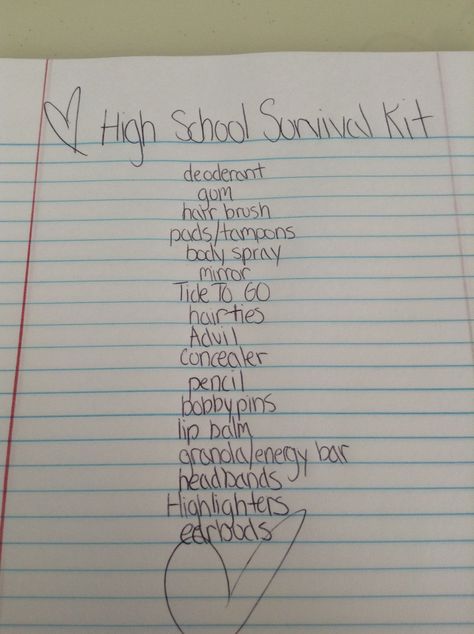 High School Survival Kit
deoderant
gum
hair brush
pads/tampons
body spray
mirror
Tide To GO
hairties
Advil
concealer
pencil
bobbypins
lip balm
granola/energy bar
headbands
Highlighters
earbuds